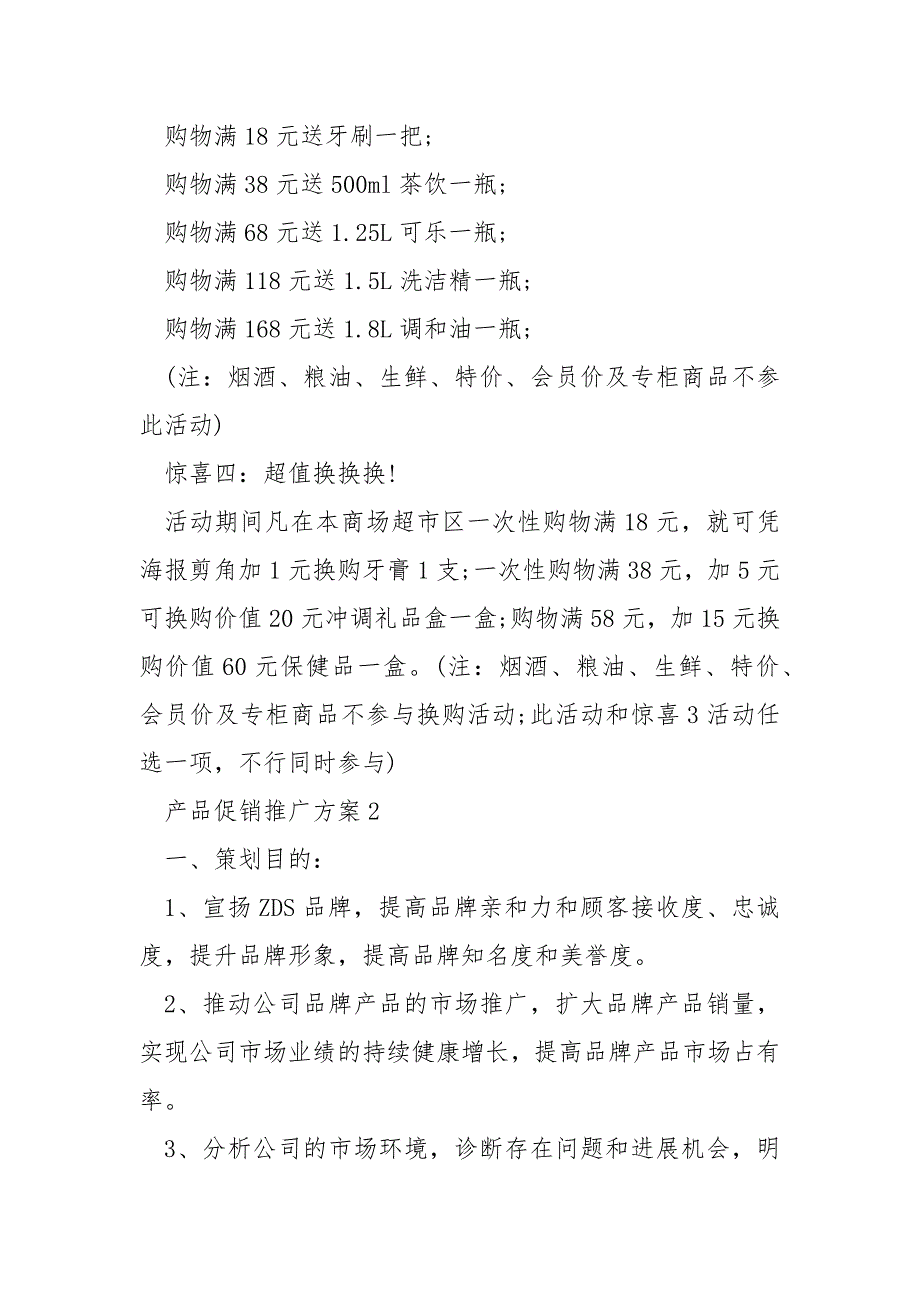 购物满 18 元送牙刷一把;
购物满 38 元送 500ml 茶饮一瓶;
购物满 68 元送 1.25L 可乐一瓶;
购物满 118 元送 1.5L 洗洁精一瓶;
购物满 168 元送 1.8L 调和油一瓶;
(注：烟酒、粮油、生鲜、特价、会员价及专柜商品不参
此活动)
惊喜四：超值换换换!
活动期间凡在本商场超市区一次性购物满 18 元，就可凭
海报剪角加 1 元换购牙膏 1 支;一次性购物满 38 元，加 5 元
可换购价值 20 元冲调礼品盒一盒;购物满 58 元，加 15 元换
购价值 60 元保健品一盒。(注：烟酒、粮油、生鲜、特价、
会员价及专柜商品不参与换购活动;此活动和惊喜 3 活动任
选一项，不行同时参与)
产品促销推广方案 2
一、策划目的：
1、宣扬 ZDS 品牌，提高品牌亲和力和顾客接收度、忠诚
度，提升品牌形象，提高品牌知名度和美誉度。
2、推动公司品牌产品的市场推广，扩大品牌产品销量，
实现公司市场业绩的持续健康增长，提高品牌产品市场占有
率。
3、分析公司的市场环境，诊断存在问题和进展机会，明